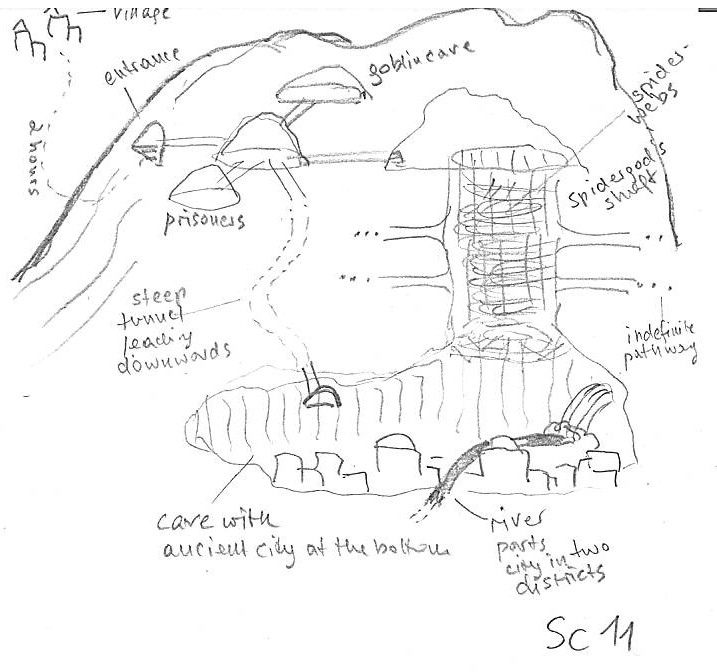 village
entrance
goblincave
spider-
webs
2 hours
spidergod's
shaft
prisoners
steep
tunnel
leading
downwards
indefinite
pathway
cave with
ancient city at the bottom
river
parts
city in two
districts
Sc 11